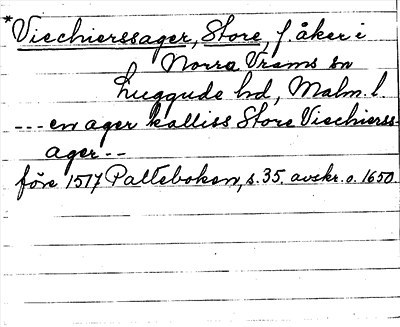 *Vischierssager, Store, f. åker i
Norra Vrams sn
Luggude hd, Malm. l.
--- en ager kalliss Store Vischierss
ager --
före 1517 Palteboken, s. 35. avskr. o. 1650.